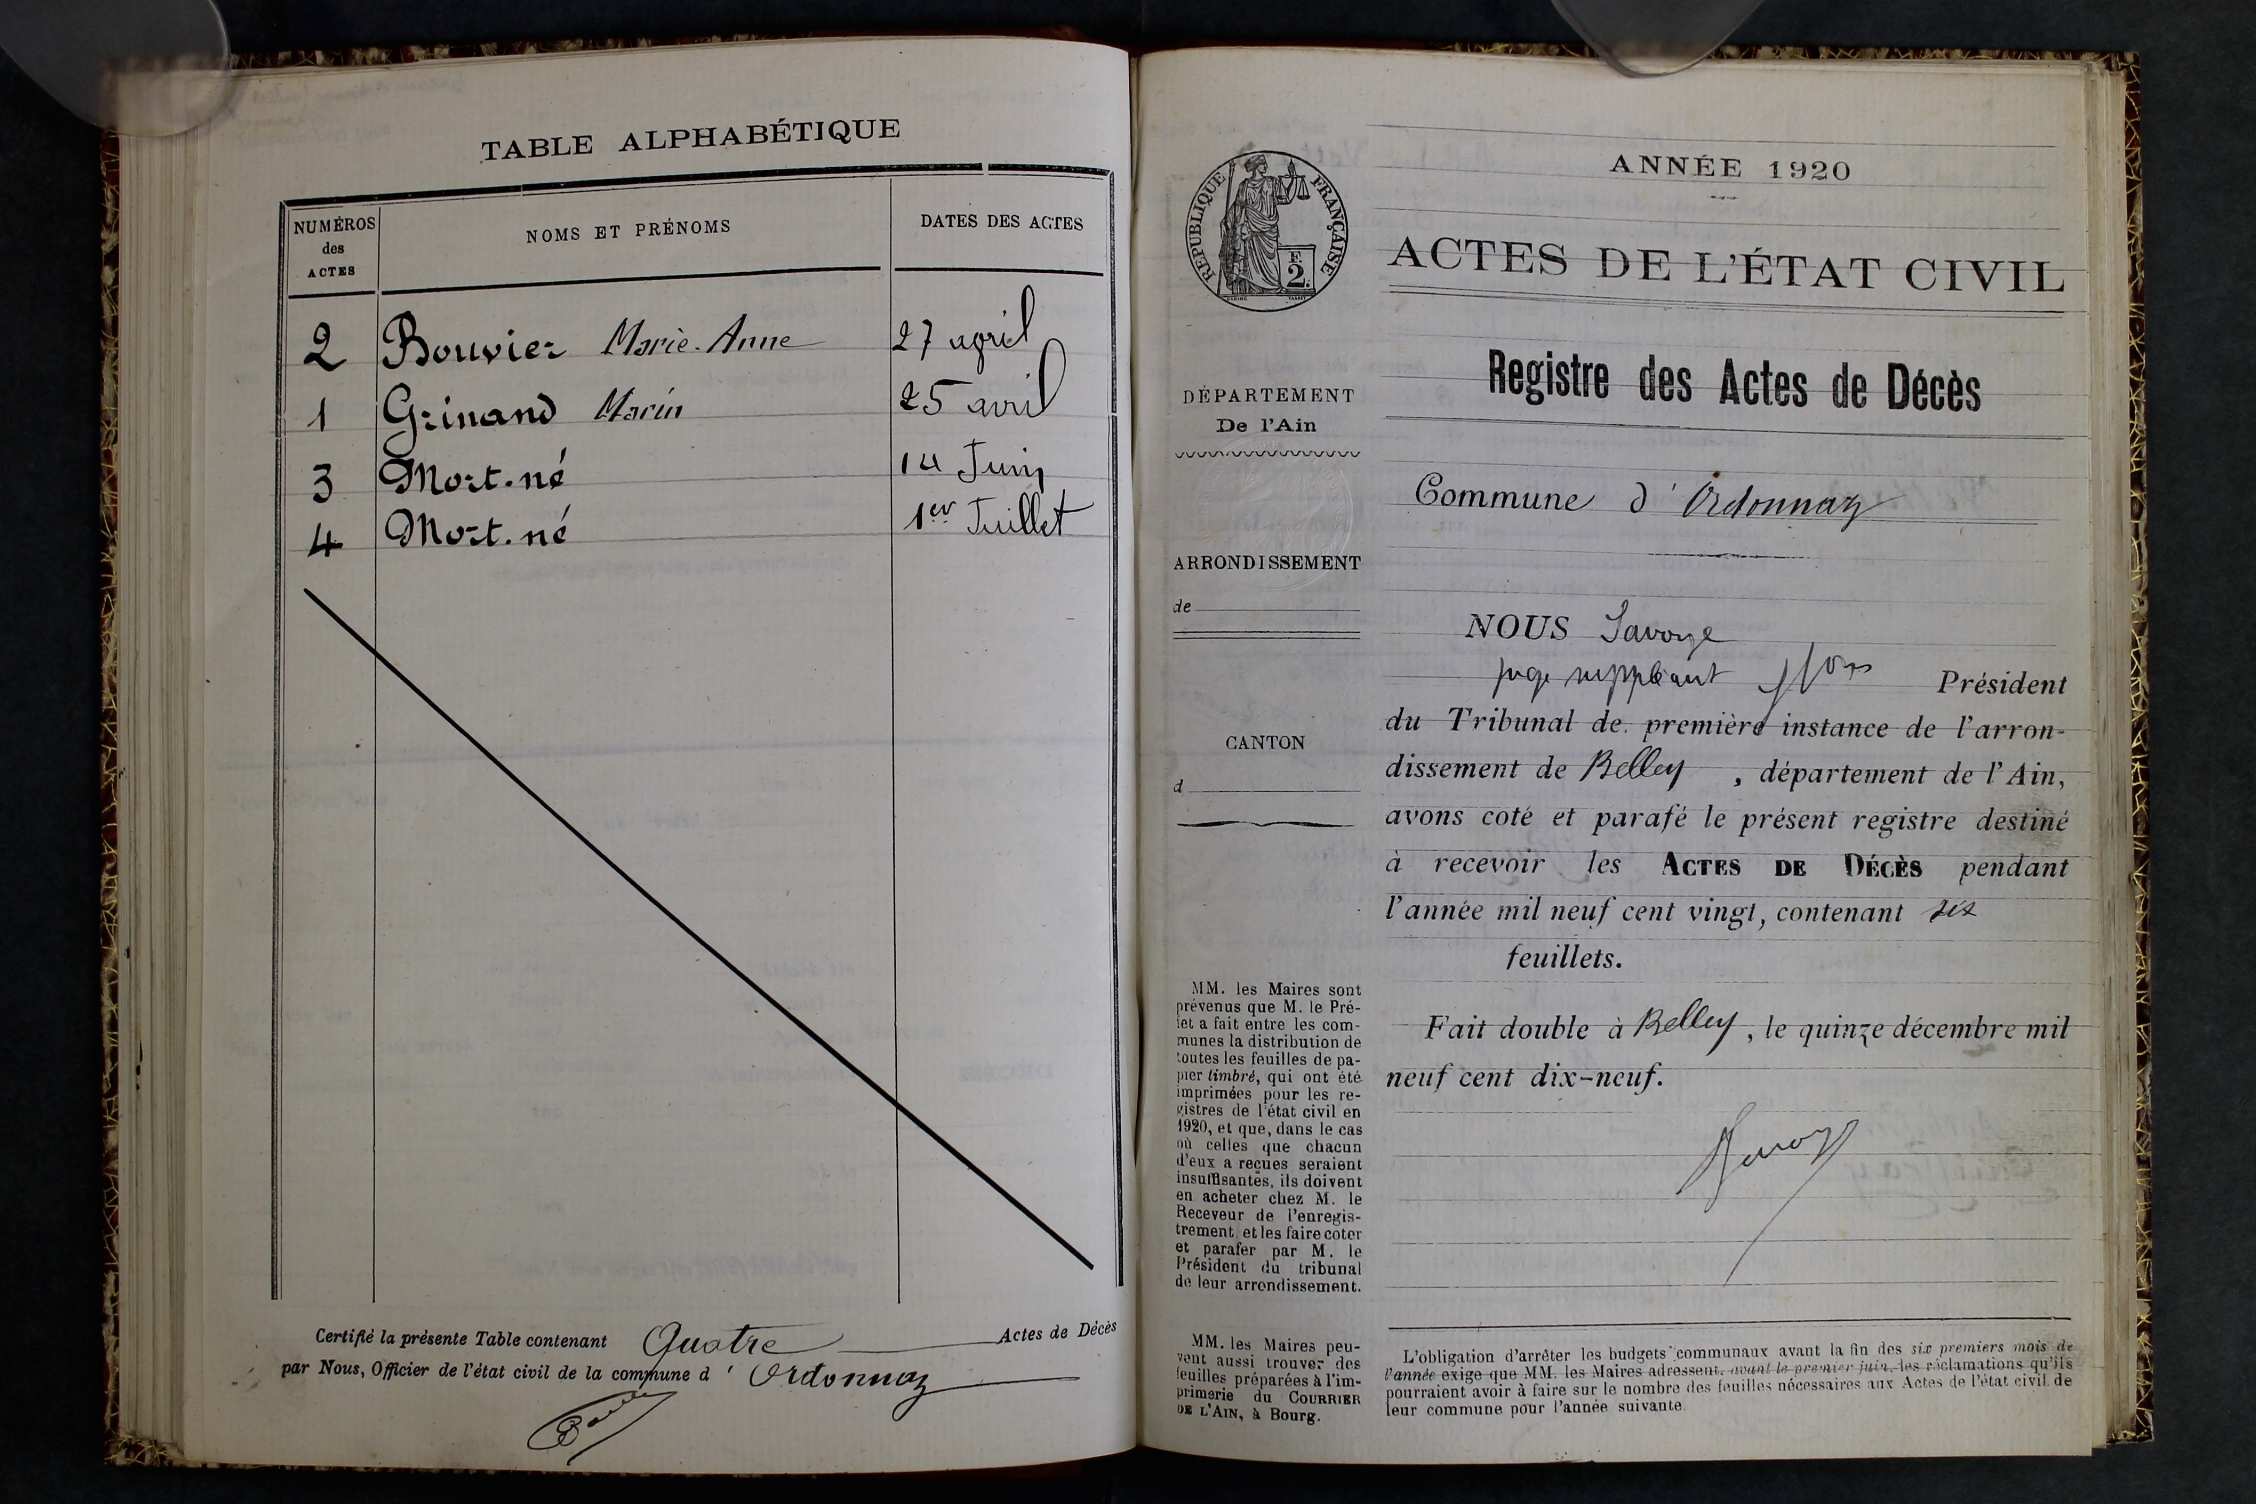 TABLE ALPHABÉTIQUE
NUMÉROS
des
ACTES
NOMS ET PRÉNOMS
DATES DES ACTES
2 Bouvier Marie-Anne 27 avril
1 Grinand Marin 25 avril
3 Mort-né 14 Juin
4 Mort-né 1er Juillet
Certifié la présente Table contenant Quatre Actes de Décès
par Nous, Officier de l'état civil de la commune d' Ordonnaz
RÉPUBLIQUE FRANÇAISE
F.
2.
DÉPARTEMENT
De l'Ain
ARRONDISSEMENT
de
CANTON
d
MM. les Maires sont
prévenus que M. le Pré-
fet a fait entre les com-
munes la distribution de
toutes les feuilles de pa-
pier timbré, qui ont été
imprimées pour les re-
gistres de l'état civil en
1920, et que, dans le cas
où celles que chacun
d'eux a reçues seraient
insuffisantes, ils doivent
en acheter chez M. le
Receveur de l'enregis-
trement et les faire coter
et parafer par M. le
Président du tribunal
de leur arrondissement.
MM. les Maires peu-
vent aussi trouver des
feuilles préparées à l'im-
primerie du COURRIER
DE L'AIN, à Bourg.
ANNÉE 1920
ACTES DE L'ÉTAT CIVIL
Registre des Actes de Décès
Commune d' Ordonnaz
NOUS Savoye
juge suppléant Président
du Tribunal de première instance de l'arron-
dissement de Belley, département de l'Ain,
avons coté et parafé le présent registre destiné
à recevoir les ACTES DE DÉCÈS pendant
l'année mil neuf cent vingt, contenant six
feuillets.
Fait double à Belley, le quinze décembre mil
neuf cent dix-neuf.
L'obligation d'arrêter les budgets communaux avant la fin des six premiers mois de
l'année exige que MM. les Maires adressent, avant le premier juin, les réclamations qu'ils
pourraient avoir à faire sur le nombre des feuilles nécessaires aux Actes de l'état civil de
leur commune pour l'année suivante.